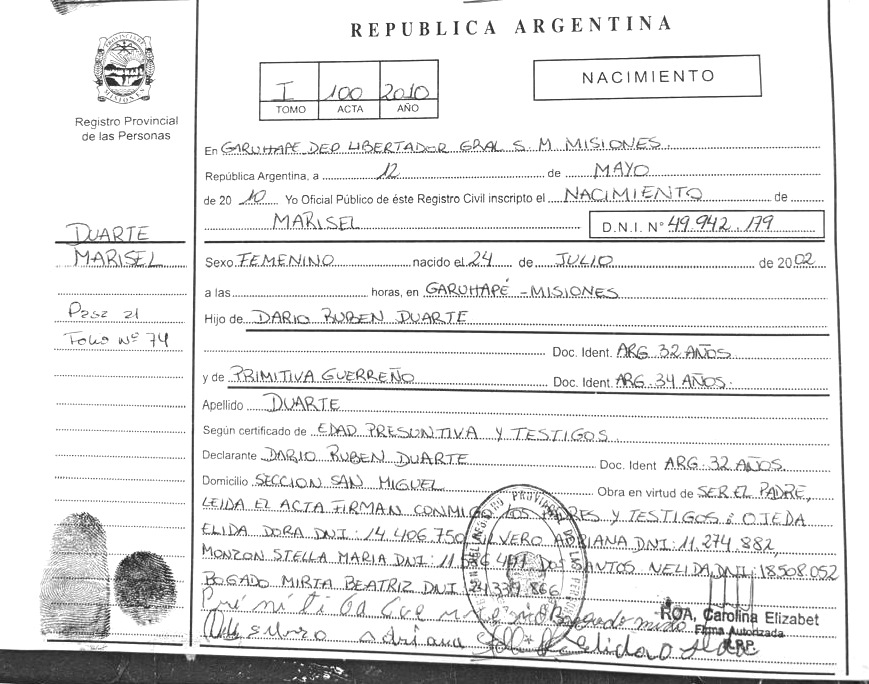 REPUBLICA ARGENTINA
PROVINCIA DE MISIONES
Registro Provincial
de las Personas
I 100 2010
TOMO ACTA AÑO
NACIMIENTO
En GARUHAPE DEP LIBERTADOR GRAL S. M. MISIONES.
República Argentina, a 12 de MAYO
de 20 10 Yo Oficial Público de éste Registro Civil inscripto el NACIMIENTO de
MARISEL D.N.I. Nº 49.942.179
DUARTE
MARISEL
Pasa al
Folio Nº 74
Sexo FEMENINO nacido el 24 de JULIO de 2002
a las horas, en GARUHAPÉ - MISIONES
Hijo de DARIO RUBEN DUARTE
Doc. Ident. ARG. 32 AÑOS
y de PRIMITIVA GUERREÑO Doc. Ident. ARG. 34 AÑOS.
Apellido DUARTE
Según certificado de EDAD PRESUNTIVA Y TESTIGOS
Declarante DARIO RUBEN DUARTE Doc. Ident ARG. 32 AÑOS.
Domicilio SECCION SAN MIGUEL Obra en virtud de SER EL PADRE,
LEIDA EL ACTA FIRMAN CONMIGO LOS PADRES Y TESTIGOS: OJEDA
ELIDA DORA DNI: 14.406.750 ADRIANA DNI: 11.274.882,
MONZON STELLA MARIA DNI: DOS SANTOS NELIDA DNI: 18508.052
BOGADO MIRTA BEATRIZ DNI
ROA, Carolina Elizabet
Firma Autorizada
R.P.P.